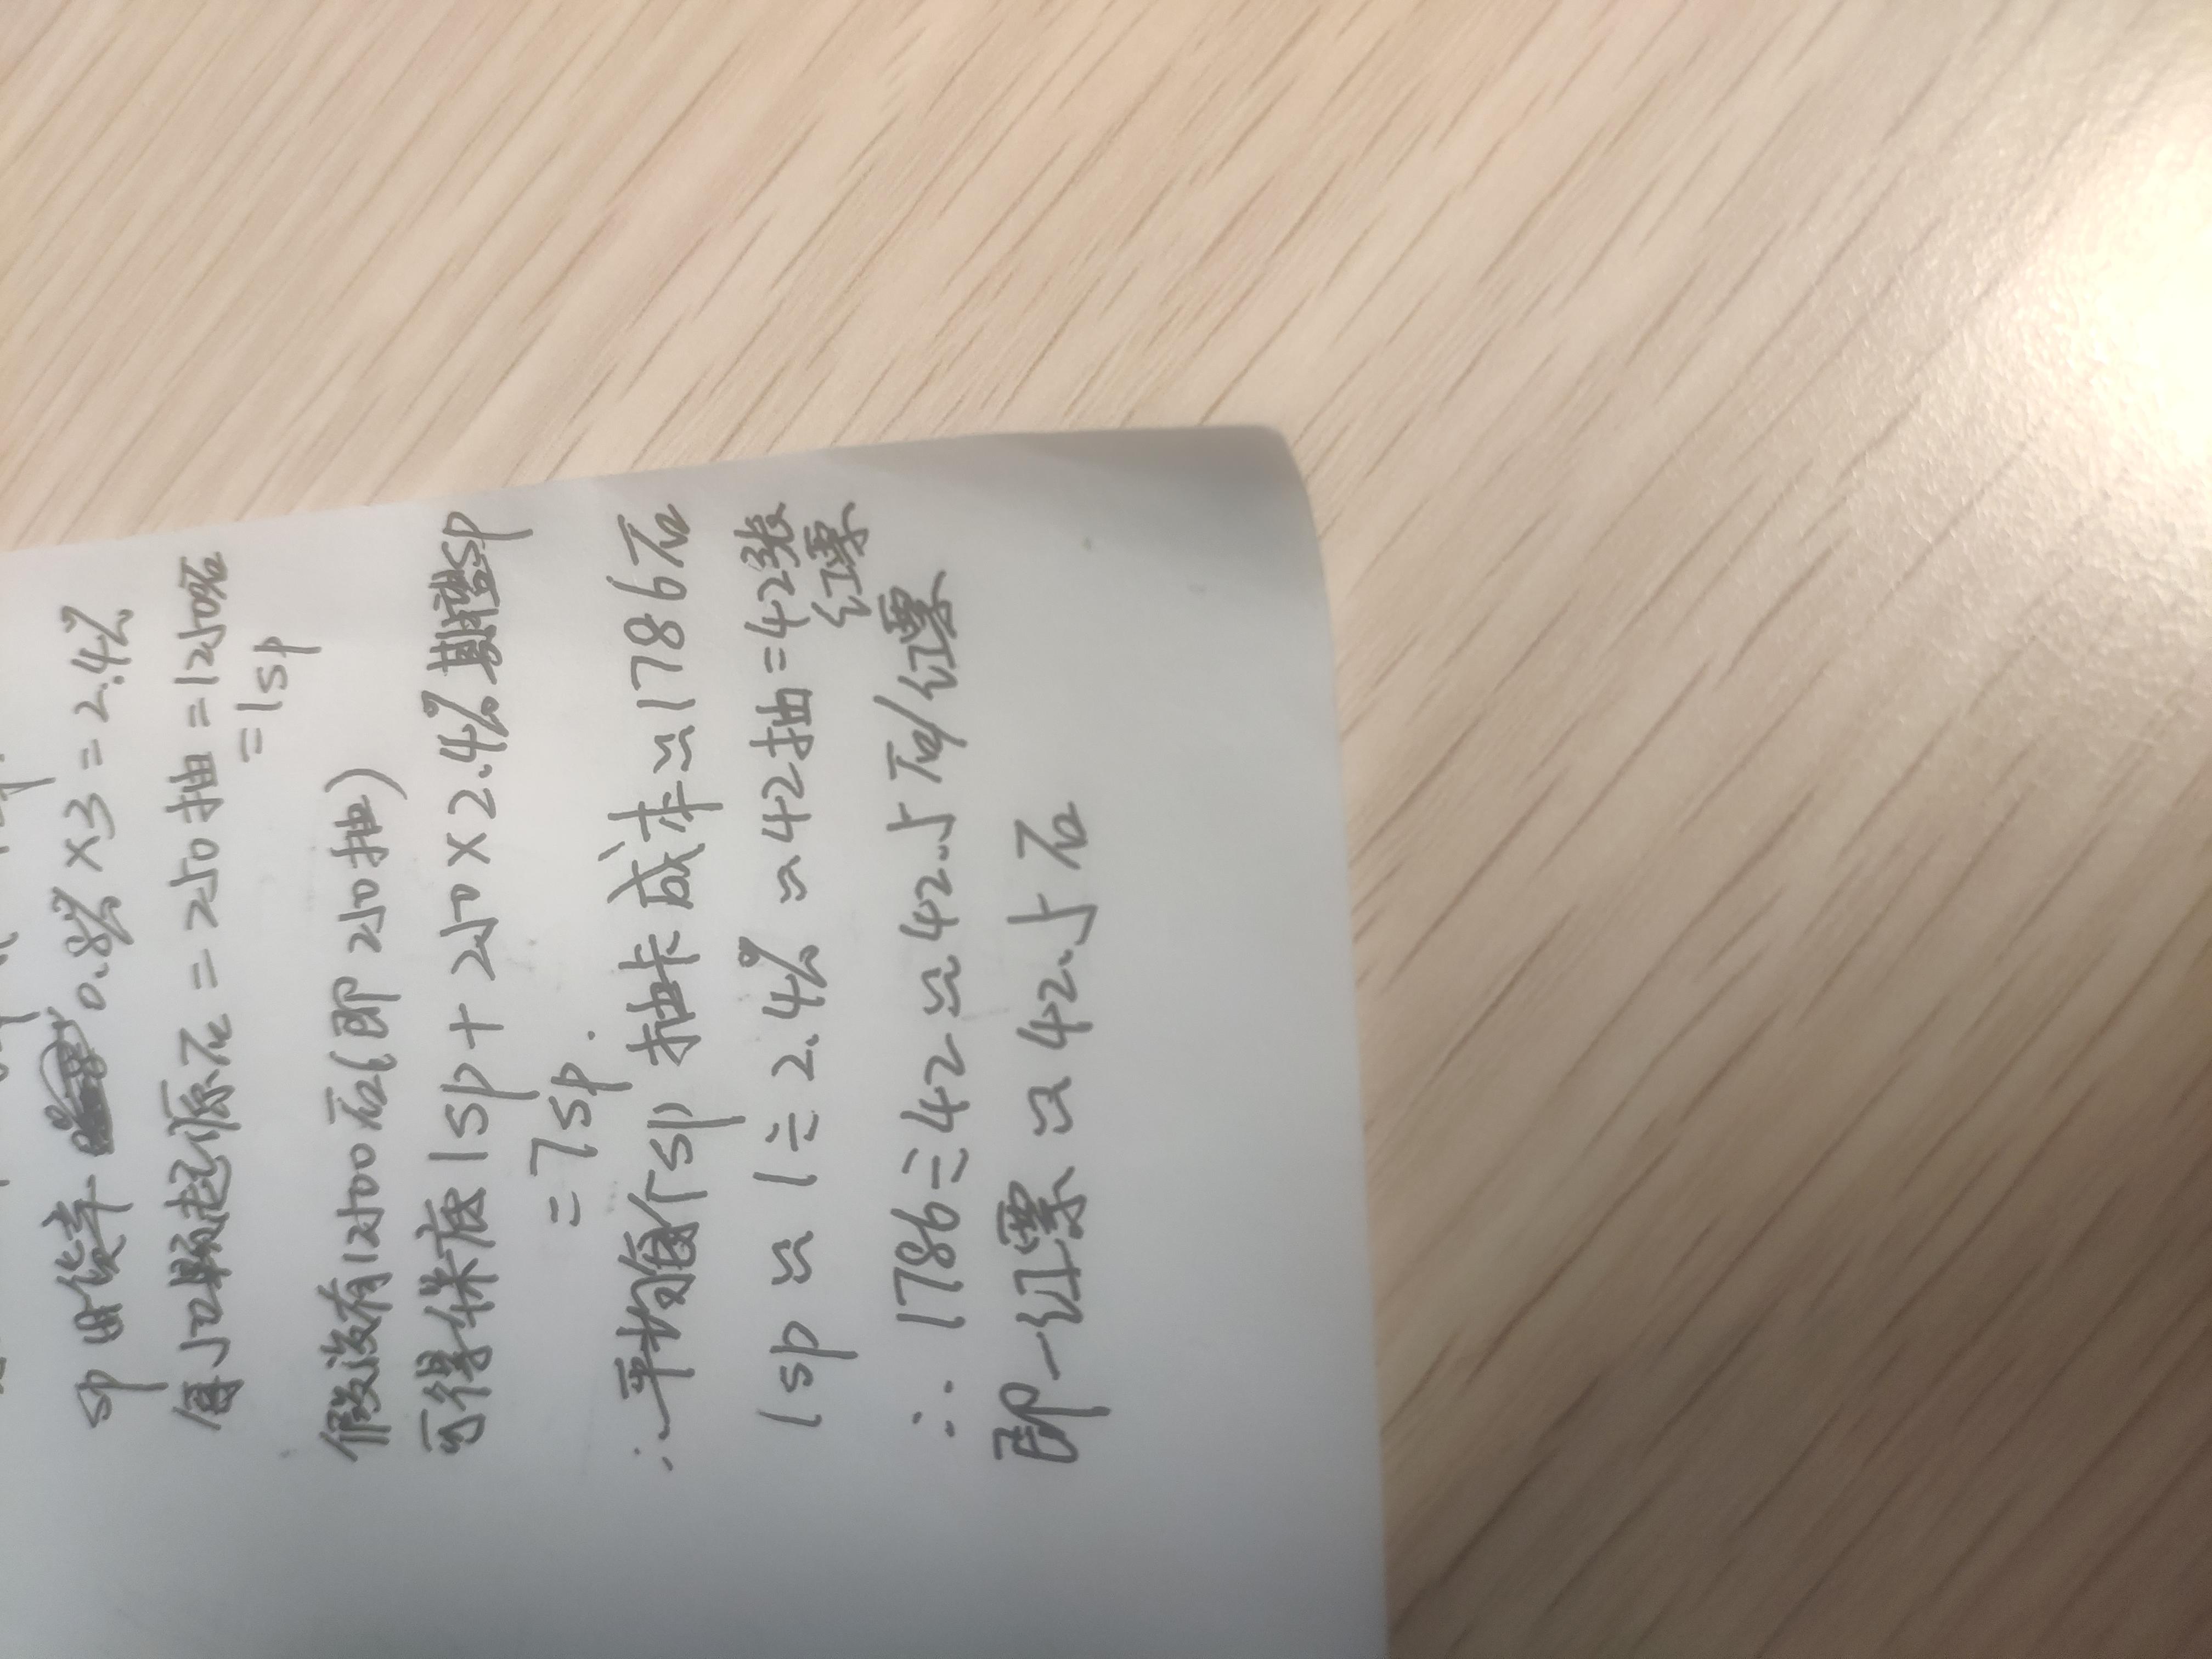 sp出货率 0.8% × 3 = 2.4%
每50颗起源石 = 250抽 = 12500石
= 1sp
假设有12500石(即250抽)
可得保底1sp + 250 × 2.4% 期望sp
= 7sp.
∴ 平均每个sp 抽卡成本≈1786石
1sp ≈ 1÷2.4% ≈ 42抽 = 42张
红票
∴ 1786÷42 ≈ 42.5石/红票
即一红票 ≈ 42.5石